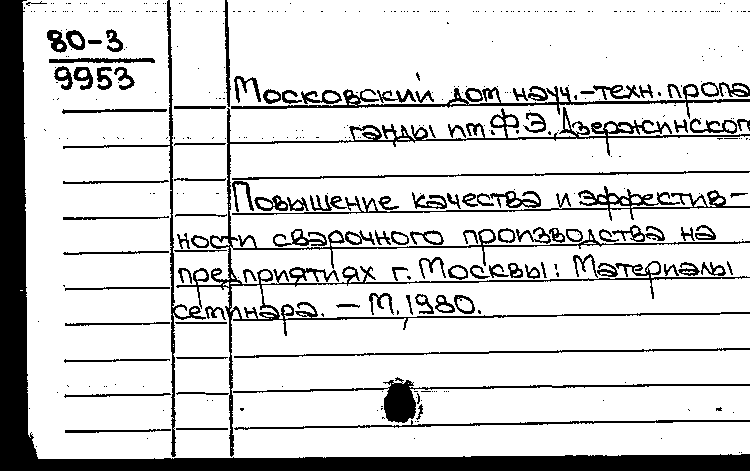 80-3
9953
Московский дом науч.-техн. пропа
ганды им. Ф.Э. Дзержинского
Повышение качества и эффектив-
ности сварочного производства на
предприятиях г. Москвы: Материалы
семинара. — М. 1980.